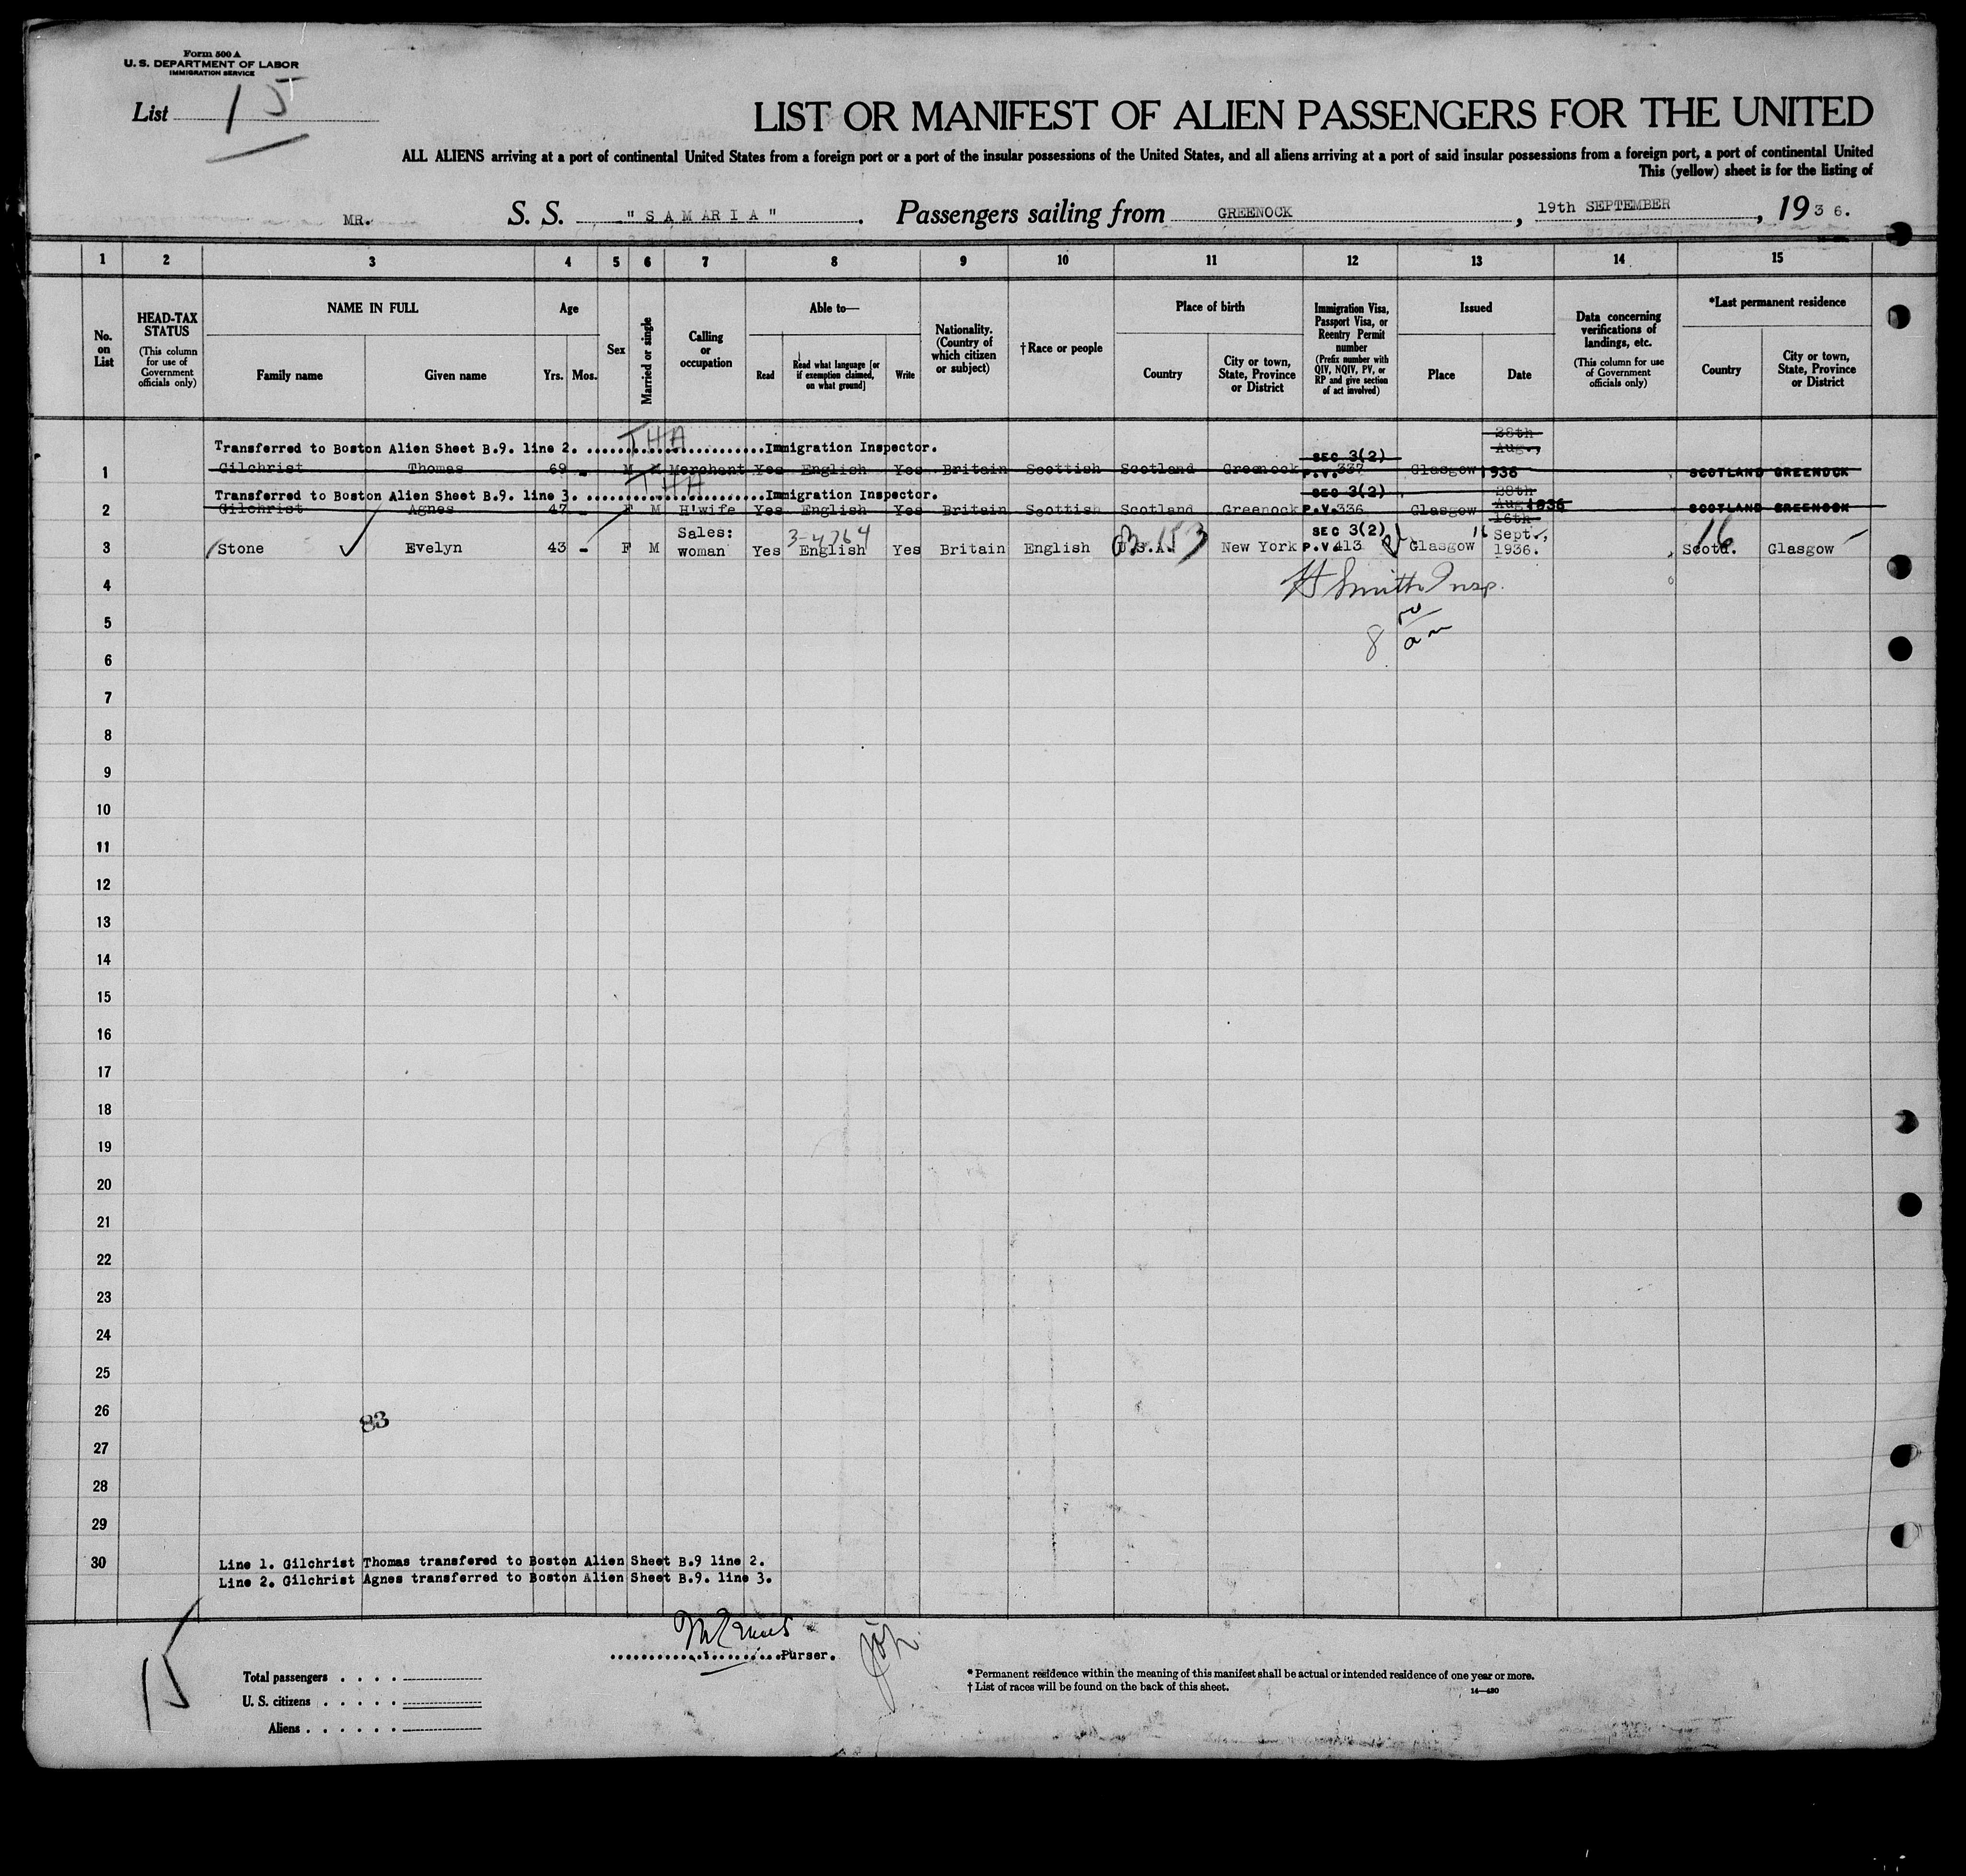 Form 500 A
U. S. DEPARTMENT OF LABOR
IMMIGRATION SERVICE
List 15
LIST OR MANIFEST OF ALIEN PASSENGERS FOR THE UNITED
ALL ALIENS arriving at a port of continental United States from a foreign port or a port of the insular possessions of the United States, and all aliens arriving at a port of said insular possessions from a foreign port, a port of continental United
This (yellow) sheet is for the listing of
MR. S. S. "SAMARIA". Passengers sailing from GREENOCK, 19th SEPTEMBER, 1936.
1 2 3 4 5 6 7 8 9 10 11 12 13 14 15
No. on List
HEAD-TAX STATUS (This column for use of Government officials only)
NAME IN FULL
Family name Given name
Age
Yrs. Mos.
Sex
Married or single
Calling or occupation
Able to—
Read
Read what language [or if exemption claimed, on what ground]
Write
Nationality. (Country of which citizen or subject)
†Race or people
Place of birth
Country
City or town, State, Province or District
Immigration Visa, Passport Visa, or Reentry Permit number (Prefix number with QIV, NQIV, PV, or RP and give section of act involved)
Issued
Place Date
Data concerning verifications of landings, etc. (This column for use of Government officials only)
*Last permanent residence
Country
City or town, State, Province or District
Transferred to Boston Alien Sheet B.9. line 2. THA Immigration Inspector.
1 Gilchrist Thomas 69 - M M Merchant Yes English Yes Britain Scottish Scotland Greenock SEC 3(2) P.V.337 Glasgow 28th Aug., 1936 SCOTLAND GREENOCK
Transferred to Boston Alien Sheet B.9. line 3. THA Immigration Inspector.
2 Gilchrist Agnes 47 - F M H'wife Yes English Yes Britain Scottish Scotland Greenock SEC 3(2) P.V.336 Glasgow 28th Aug 1936 SCOTLAND GREENOCK
3 Stone Evelyn 43 - F M Sales: woman Yes 3-4764 English Yes Britain English U.S.A. 153 New York SEC 3(2) P.V.413 Glasgow 16th 16 Sept., 1936. 16 Scotd. Glasgow
4 H Smith Insp.
5
6
7
8
9
10
11
12
13
14
15
16
17
18
19
20
21
22
23
24
25
26
83
27
28
29
30 Line 1. Gilchrist Thomas transfered to Boston Alien Sheet B.9 line 2.
Line 2. Gilchrist Agnes transferred to Boston Alien Sheet B.9. line 3.
15
Purser.
Total passengers
U. S. citizens
Aliens
* Permanent residence within the meaning of this manifest shall be actual or intended residence of one year or more.
† List of races will be found on the back of this sheet.
14—430